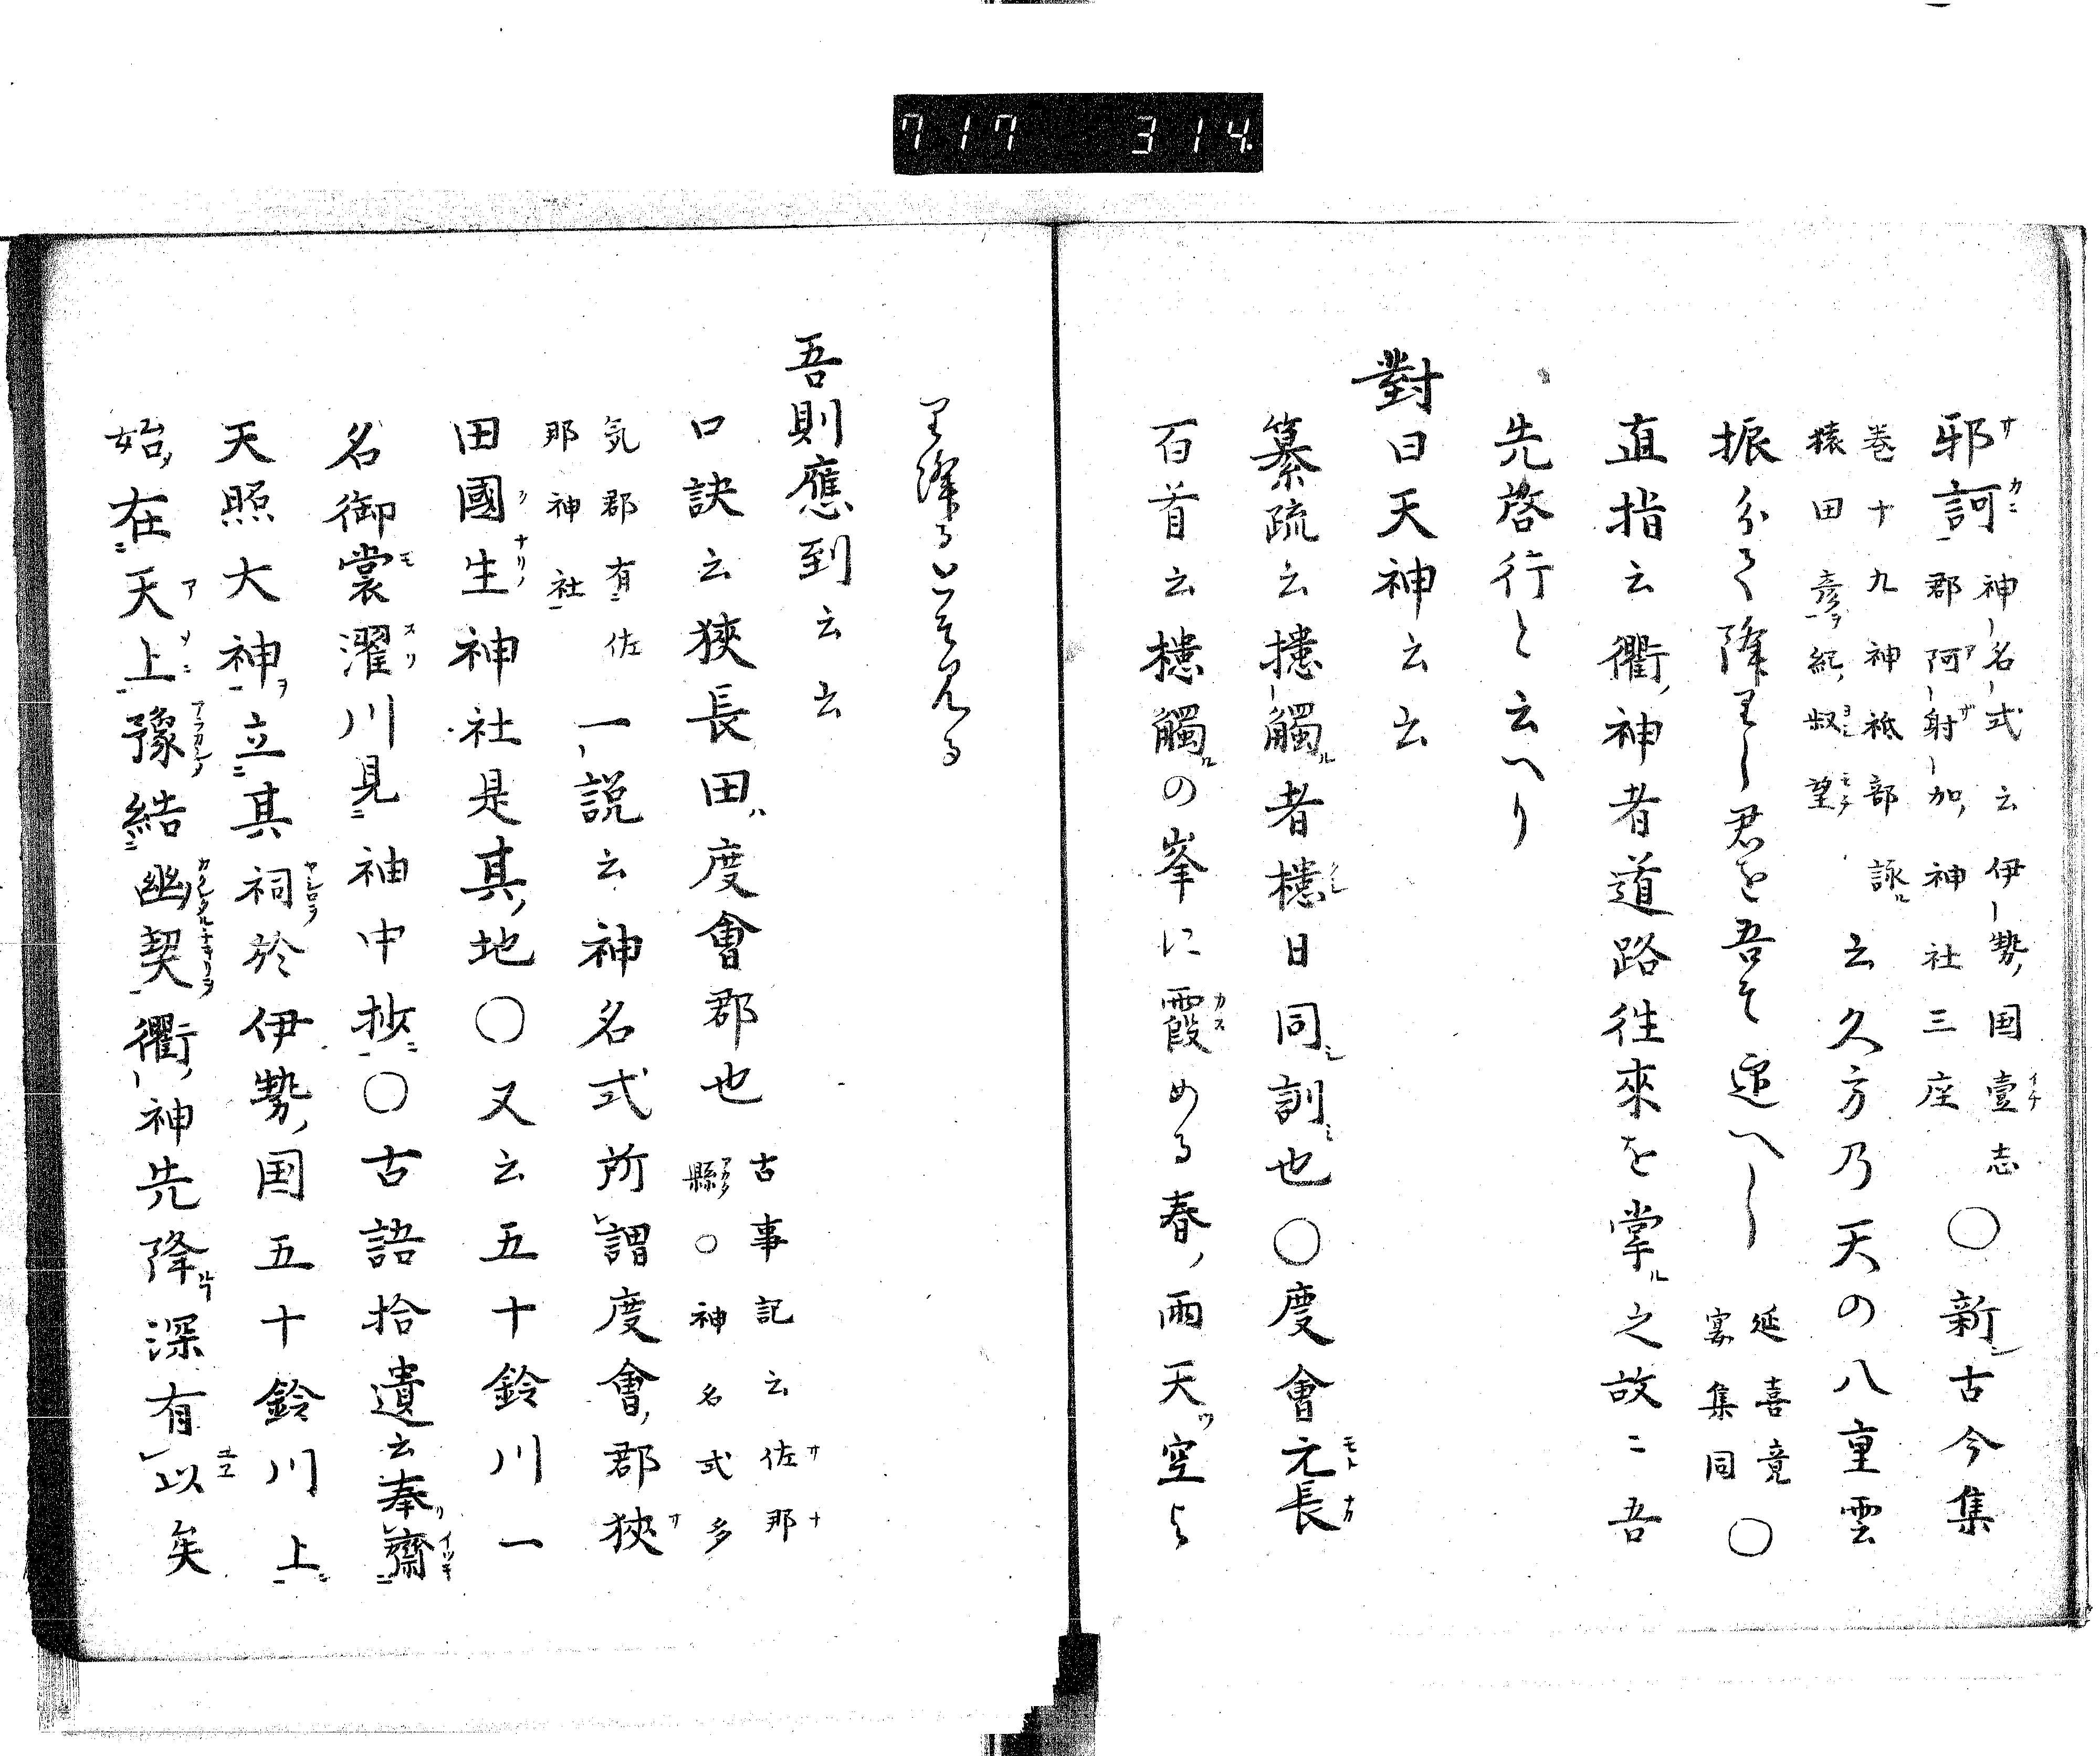 717 314.
邪訶 神名式云伊勢国壹志
郡阿射加神社三座 ○新古今集
巻十九神祇部詠
猿田彦紀叔望 云久方乃天の八重雲
振分て降りし君を吾そ迎へし 延喜竟
宴集同 ○
直指云衢神者道路往來を掌ル之故ニ吾
先啓行と云へり
對曰天神云云
纂疏云攇觸者櫶日同訓也○度會元長
百首云櫶觸の峯に霞める春雨天空よ
り降るとそ見る
吾則應到云云
口訣云狹長田ハ度會郡也 古事記云佐那
縣○神名式多
気郡有佐
那神社 一説云神名式所謂度會郡狹
田國生神社是其地○又云五十鈴川一
名御裳濯川見袖中抄○古語拾遺云奉齋
天照大神立其祠於伊勢国五十鈴川上
始在天上豫結幽契衢神先降深有以矣